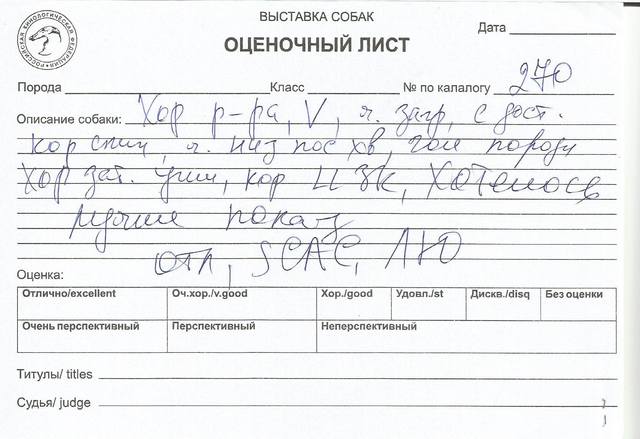 РОССИЙСКАЯ КИНОЛОГИЧЕСКАЯ ФЕДЕРАЦИЯ
ВЫСТАВКА СОБАК
Дата
ОЦЕНОЧНЫЙ ЛИСТ
Порода Класс № по калалогу 270
Описание собаки: Хор р-ра, V, г. загр, с дост.
кор спин, г. низ пос хв, гол породн
Хор зат. уши, кор ЦЗК, Хотелось
лучше показ
отл, SCAC, ЛЮ
Оценка:
Отлично/excellent Оч.хор./v.good Хор./good Удовл./st Дискв./disq Без оценки
Очень перспективный Перспективный Неперспективный
Титулы/ titles
Судья/ judge